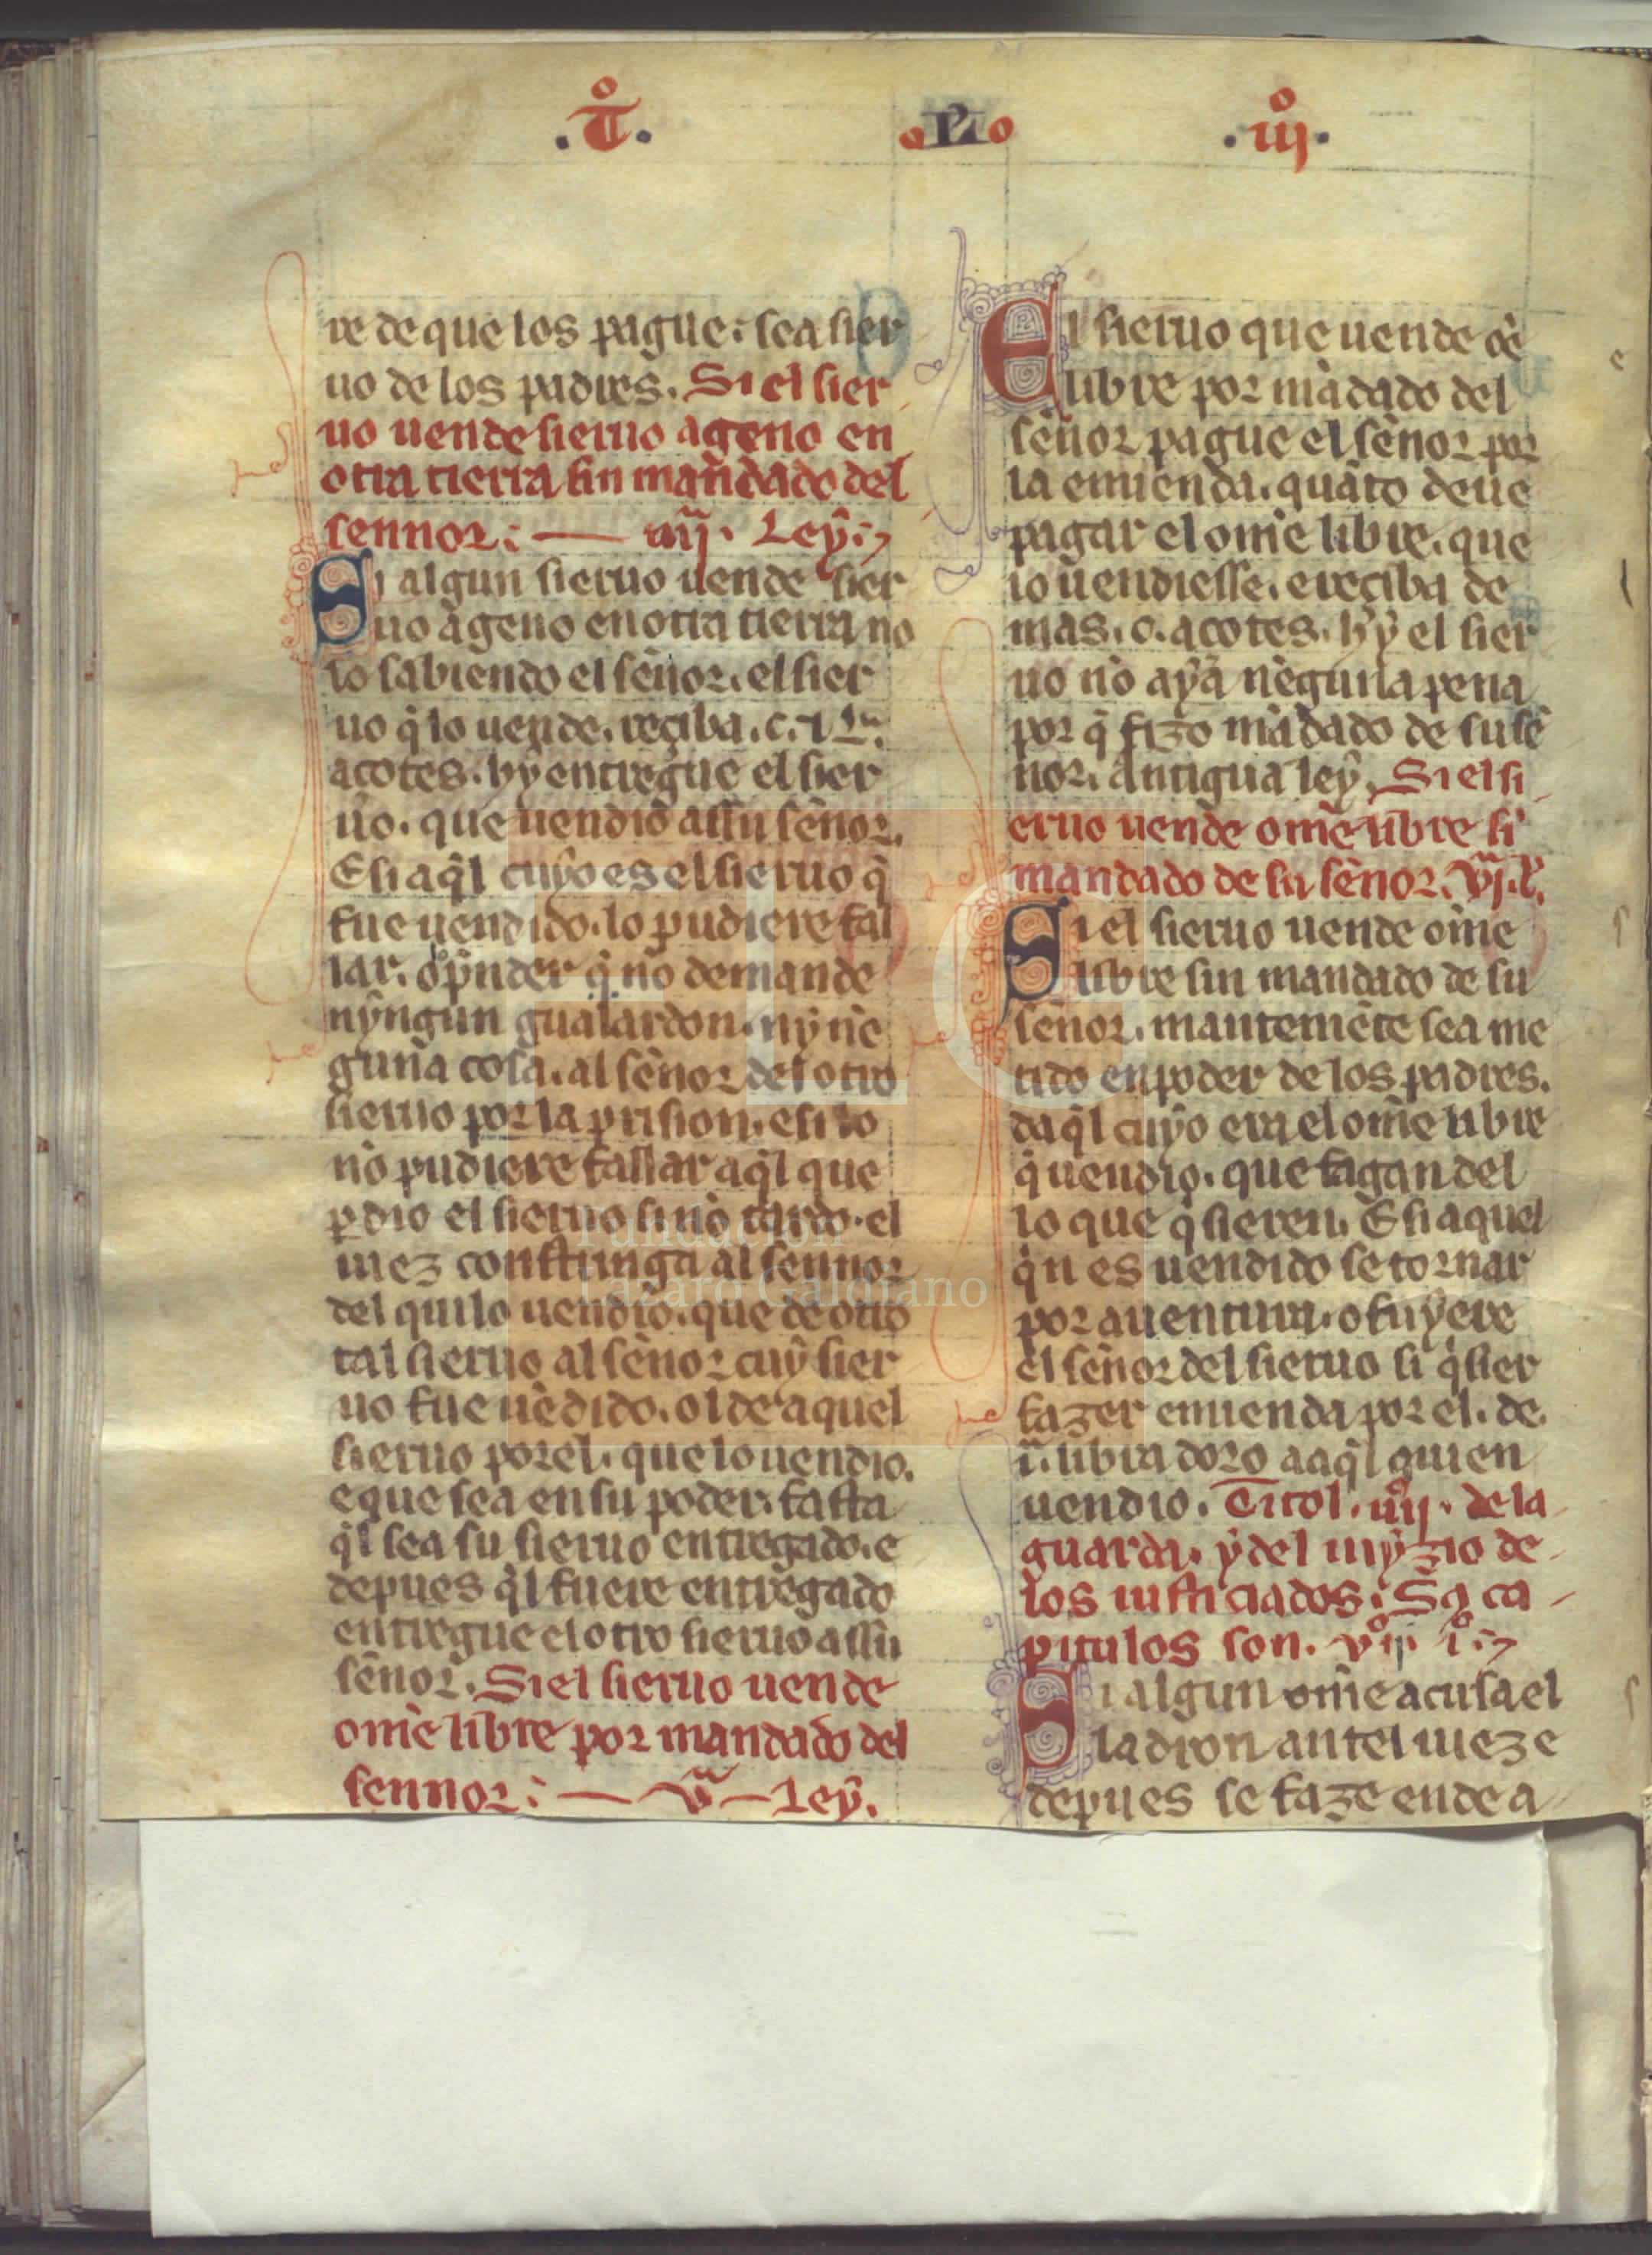 .T̊. .L. .iij̊.
re de que los pague: sea sier
uo de los padres. Si el sier
uo uende sieruo ageno en
otra tierra sin mandado del
sennor: — iiij. Ley:
Si algun sieruo uende sier
uo ageno en otra tierra no
lo sabiendo el señor. el sier
uo q̇ lo uende. reçiba. c. τ L.ᵃ
açotes. hy entregue el sier
uo. que uendio assu señor.
E si aq̇l cuyo es el sieruo q̇
fue uendido. lo pudiere fal
lar. o p̃nder q̇ no demande
nyngun gualardon. ny nē
guna cosa. al señor del otro
sieruo por la prision. e si lo
no pudiere fallar aq̇l que
pdio el sieruo sinō tardo. el
iuez constringa al sennor
del qui lo uendio. que de otro
tal sieruo al señor cuy sier
uo fue uēdido. ol de aquel
sieruo por el. que lo uendio.
e que sea en su poder. fasta
q̇l sea su sieruo entregado. e
depues q̇l fuere entregado
entregue el otro sieruo assu
señor. Si el sieruo uende
om̄e libre por mandado del
sennor: — v̄ — Ley.
El sieruo que uende oē
libre por mādado del
señor pague el señor por
la emienda. quāto deue
pagar el om̄e libre. que
lo uendiesse. e reçiba de
mas. c. açotes. hy el sier
uo nō aya nēguna pena
por q̇ fizo mādado de su sē
nor. Antigua ley. Si el si
eruo uende om̄e libre sī
mandado de su señor. vj. l.
Si el sieruo uende om̄e
libre sin mandado de su
señor. mantemēte sea me
tido en poder de los padres.
daq̇l cuyo era el om̄e libre
q̇ uendio. que fagan del
lo que q̇sieren. E si aquel
q̇n es uendido se tornar
por auentura. o fuyere
el señor del sieruo si q̇sier
fazer emienda por el. de.
i. libra doro aaq̇l quien
uendio. Titol. iiij. de la
guarda. y del iuyzio de
los iusticiados: Sa ca
pitulos son. vij l:
Si algun om̄e acusa el
ladron antel iuez e
depues se faze ende a
FLG
Fundación
Lázaro Galdiano